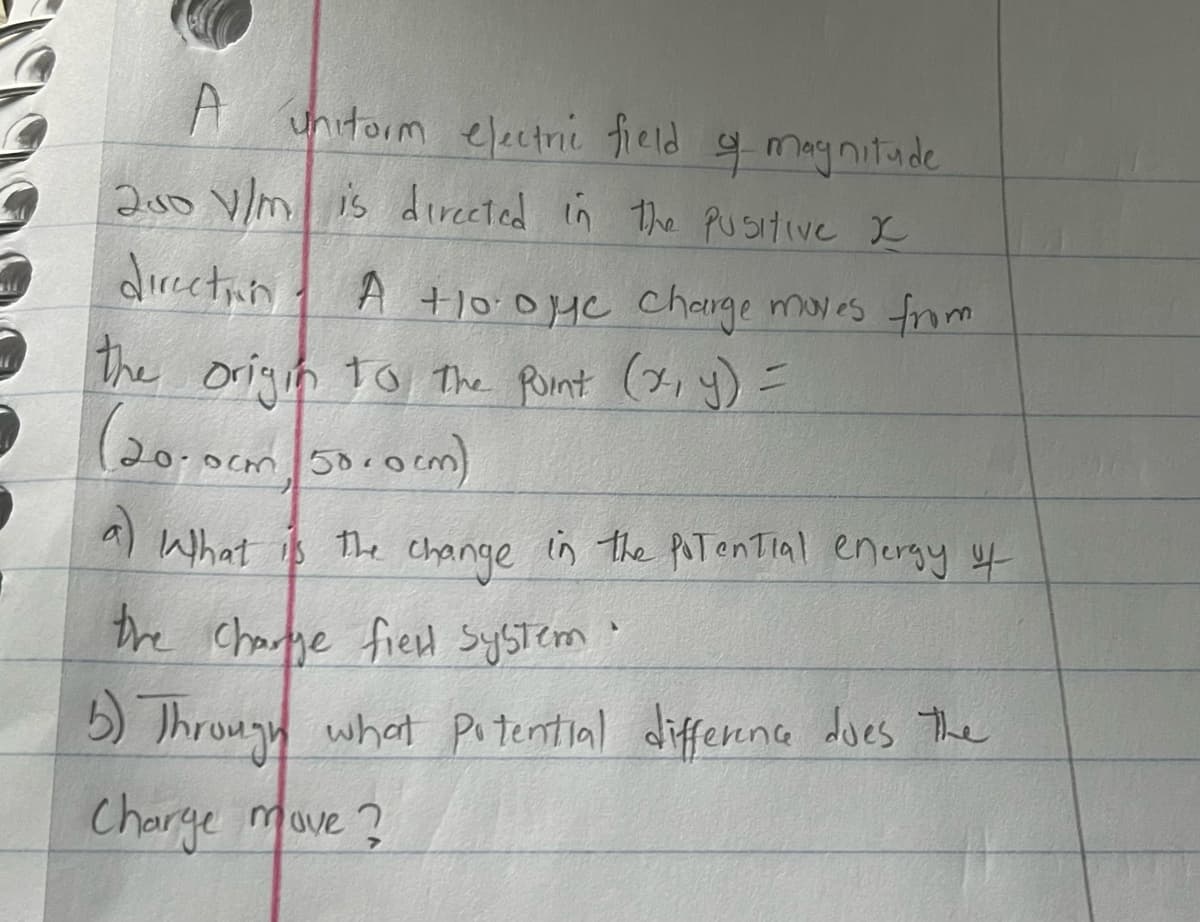 A uniform electric field of magnitude
200 V/m is directed in the positive x
direction. A +10.0 μc charge moves from
the origin to the point (x, y) =
(20.0cm, 50.0cm)
a) What is the change in the potential energy of
the charge field system.
b) Through what potential difference does the
Charge move?